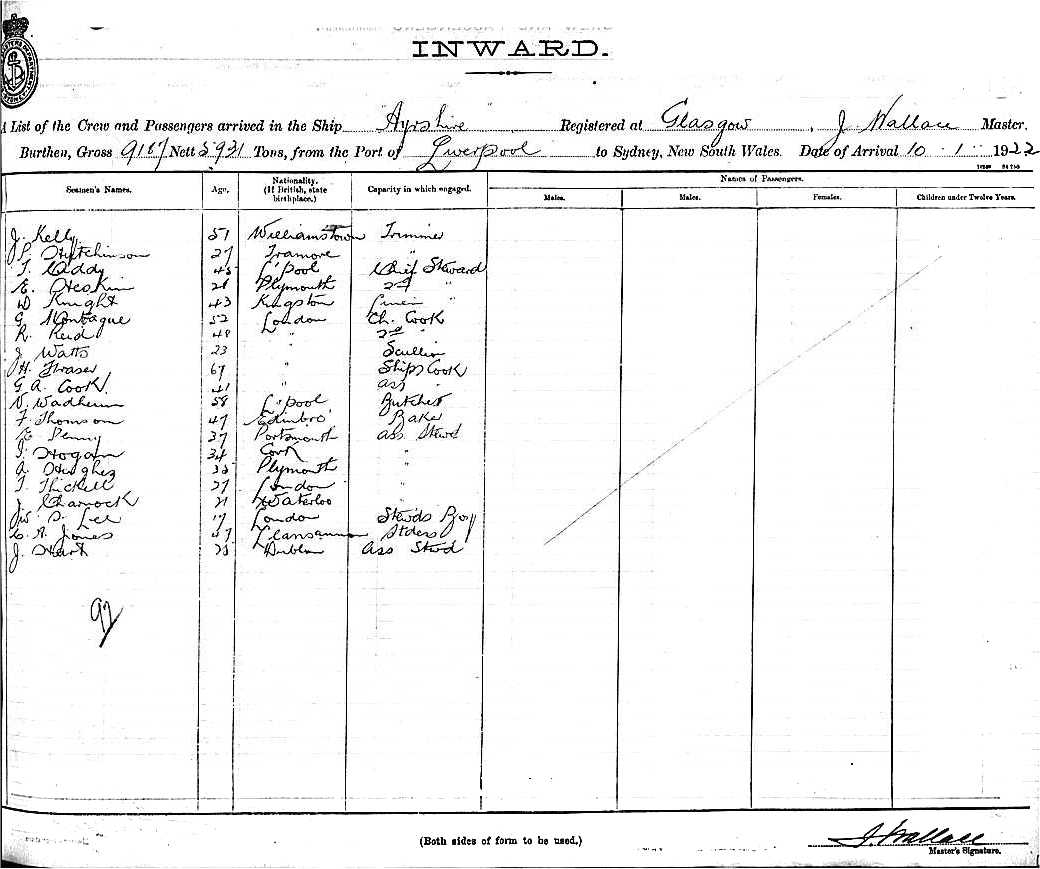 INWARD.
A List of the Crew and Passengers arrived in the Ship Ayrshire Registered at Glasgow, J Wallace Master.
Burthen, Gross 9187 Nett 5931 Tons, from the Port of Liverpool to Sydney, New South Wales. Date of Arrival 10 . 1 1922
Seamen's Names. Age. Nationality. (If British, state birthplace.) Capacity in which engaged. Names of Passengers.
Males. Males. Females. Children under Twelve Years.
J. Kelly 51 Williamstown Trimmer
P. Hutchinson 27 Tramore "
T. Addy 45 L'pool Chief Steward
E. Heskin Plymouth 2nd "
D Knight 43 Kingston
G Montague 52 London Ch. Cook
R. Reid 48 " 2nd "
J Watts 23 " Scullion
H. Fraser 67 " Ships Cook
G A. Cook 41 " ass "
58 L'pool Butcher
F. Thomson 47 Edinbro' Baker
Penny 37 Portsmouth ass Stewd
Hogan 34 Cork "
A. Hughes Plymouth "
T. Thickell 27 London "
J. Charnock 21 Waterloo
Lee 17 London Stewds Boy
Jones
J. Hart Dublin Ass Stwd
92
(Both sides of form to be used.)
J. Wallace
Master's Signature.